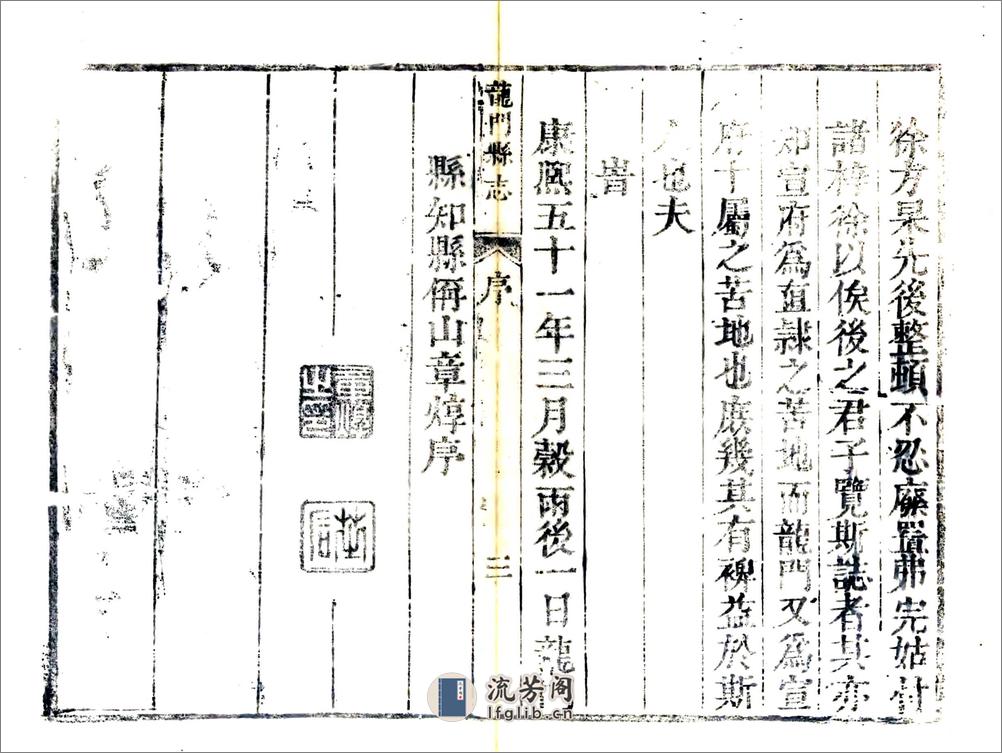 徐方杲先後整頓不忍廢置弗完姑付
諸梓徐以俟後之君子覽斯誌者其亦
知宣府為直隷之苦地而龍門又為宣
府十屬之苦地也庶幾其有裨益於斯
人也夫
旹
康熙五十一年三月穀雨後一日龍門
縣知縣偁山章焞序
龍門縣志
序
三
流芳阁
lfglib.cn